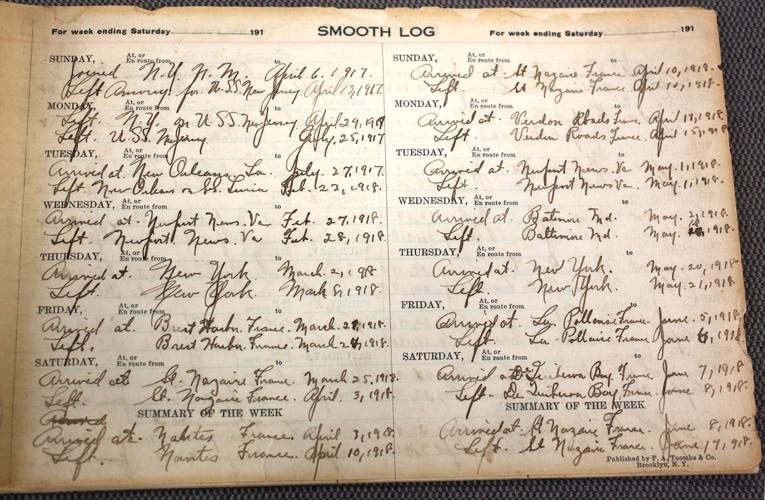 For week ending Saturday 191 SMOOTH LOG
SUNDAY, At, or En route from to
Joined N.Y. N.M. April 6. 1917.
Left for U.S.S. New Jersey April 1917
MONDAY, At, or En route from to
Left. N.Y. on U.S.S. N. Jersey April 29, 1918
Left U.S.S. N. Jersey July, 25, 1917
TUESDAY, At, or En route from to
Arrived at New Orleans, La. July. 27, 1917.
Left New Orleans on Feb. 22, 1918.
WEDNESDAY, At, or En route from to
Arrived at Newport News. Va Feb. 27, 1918.
Left. Newport News. Va Feb. 28, 1918.
THURSDAY, At, or En route from to
Arrived at. New York March. 2, 198
Left. New York. March 8, 1918.
FRIDAY, At, or En route from to
Arrived at. Brest Harbor. France. March. 1918.
Left. Brest Harbor. France. March. 1918.
SATURDAY, At, or En route from to
Arrived at St. Nazaire France. March 25, 1918.
Left. St. Nazaire France. April. 3, 1918.
SUMMARY OF THE WEEK
Arrived at. Nantes France. April 3, 1918.
Left. Nantes France. April 10, 1918.
For week ending Saturday 191
SUNDAY, At, or En route from to
Arrived at. St Nazaire France April 10, 1918.
Left. St Nazaire France April 1918.
MONDAY, At, or En route from to
Arrived at. Verdon Roads Fran. April 1918.
Left. Verdon Roads France. April 15, 1918.
TUESDAY, At, or En route from to
Arrived at. Newport News. Va May. 1, 1918.
Left. Newport News Va. May. 1, 1918.
WEDNESDAY, At, or En route from to
Arrived at. Baltimore Md. May. 2, 1918.
Left. Baltimore Md. May. 1918.
THURSDAY, At, or En route from to
Arrived at. New York. May. 20, 1918.
Left. New York. May. 21, 1918.
FRIDAY, At, or En route from to
Arrived at La. France. June. 5, 1918.
Left. La. France June 6, 1918
SATURDAY, At, or En route from to
Arrived at De Quiberon Bay France. June 7, 1918.
Left. De Quiberon Bay France June 8, 1918.
SUMMARY OF THE WEEK
Arrived at. St Nazaire France. June 8, 1918.
Left. St Nazaire France. June 17, 1918.
Published by F. A. Toombs & Co.
Brooklyn, N. Y.